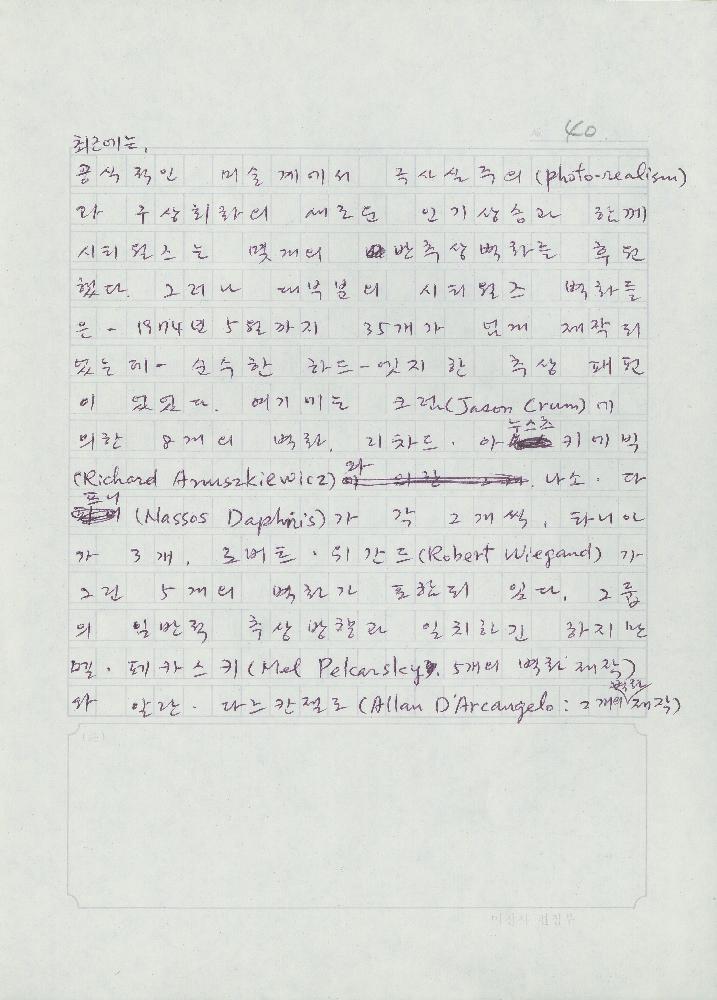 40
최근에는,
공식적인 미술계에서 극사실주의(photo-realism)
과 구상회화의 새로운 인기상승과 함께
시티월즈는 몇개의 반추상벽화를 후원
했다. 그러나 대부분의 시티월즈 벽화들
은 - 1974년 5월까지 35개가 넘게 제작되
었는데 - 순수한 하드-엣지한 추상 패턴
이 었었다. 여기에는 크럼(Jason Crum)에
의한 8개의 벽화, 리차드·아누스츠키에빅
(Richard Anuszkiewicz)과 나소·다
프니(Nassos Daphnis)가 각 2개씩, 타니아
가 3개, 로버트·위간드(Robert Wiegand)가
그린 5개의 벽화가 포함되 있다. 그룹
의 일반적 추상방향과 일치하긴 하지만
멜·페카스키(Mel Pekarsky, 5개의 벽화 제작)
와 알란·다느칸젤로(Allan D'Arcangelo : 2개의 벽화 제작)
미진사 편집부